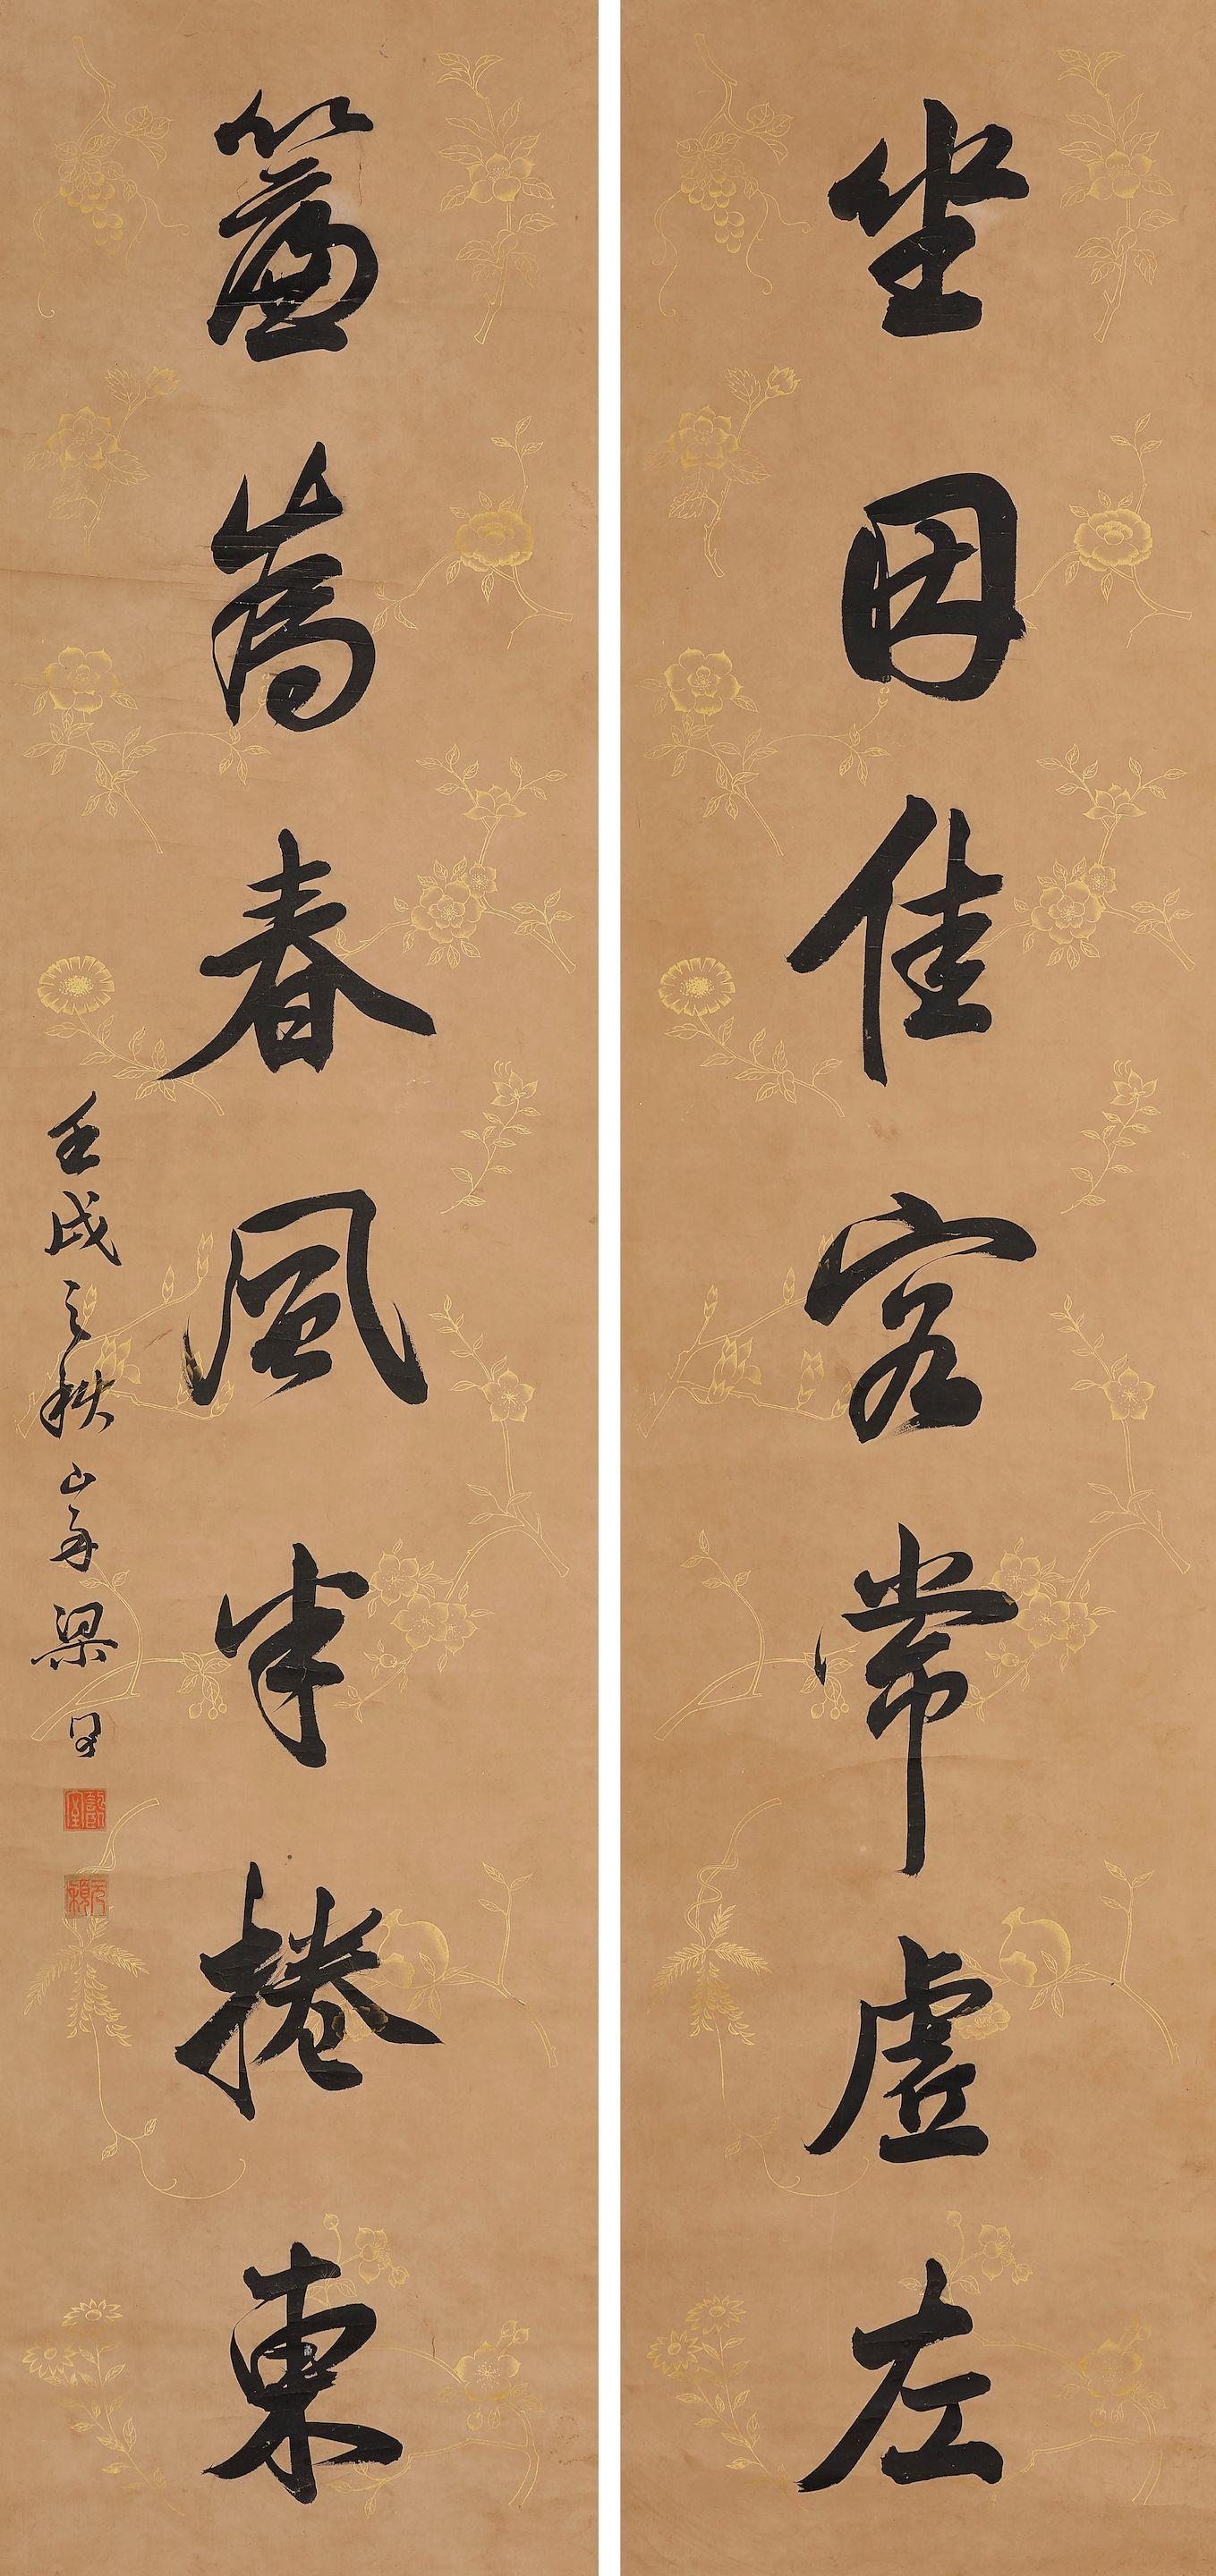 坐因佳客常虛左
簾爲春風半捲東
壬戌之秋山舟梁同書
元穎